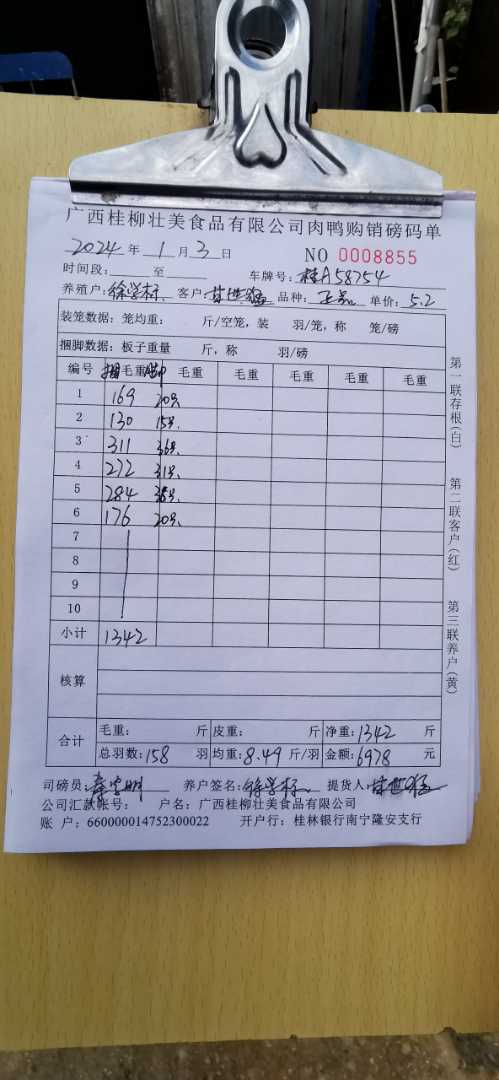 广西桂柳壮美食品有限公司肉鸭购销磅码单
2024 年 1 月 3 日 NO 0008855
时间段: 至 车牌号: 桂A58754
养殖户: 徐学标 客户: 品种: 单价: 5.2
装笼数据: 笼均重: 斤/空笼, 装 羽/笼, 称 笼/磅
捆脚数据: 板子重量 斤, 称 羽/磅
编号 毛重 毛重 毛重 毛重 毛重 毛重
1 169 20只
2 130 15只
3 311 36只
4 272 31只
5 284
6 176 20只
7
8
9
10
小计 1342
核算
合计 毛重: 斤 皮重: 斤 净重: 1342 斤
总羽数: 158 羽 均重: 8.49 斤/羽 金额: 6978 元
司磅员: 养户签名: 徐学标 提货人:
公司汇款账号: 户名: 广西桂柳壮美食品有限公司
账 户: 660000014752300022 开户行: 桂林银行南宁隆安支行
第一联存根(白)
第二联客户(红)
第三联养户(黄)